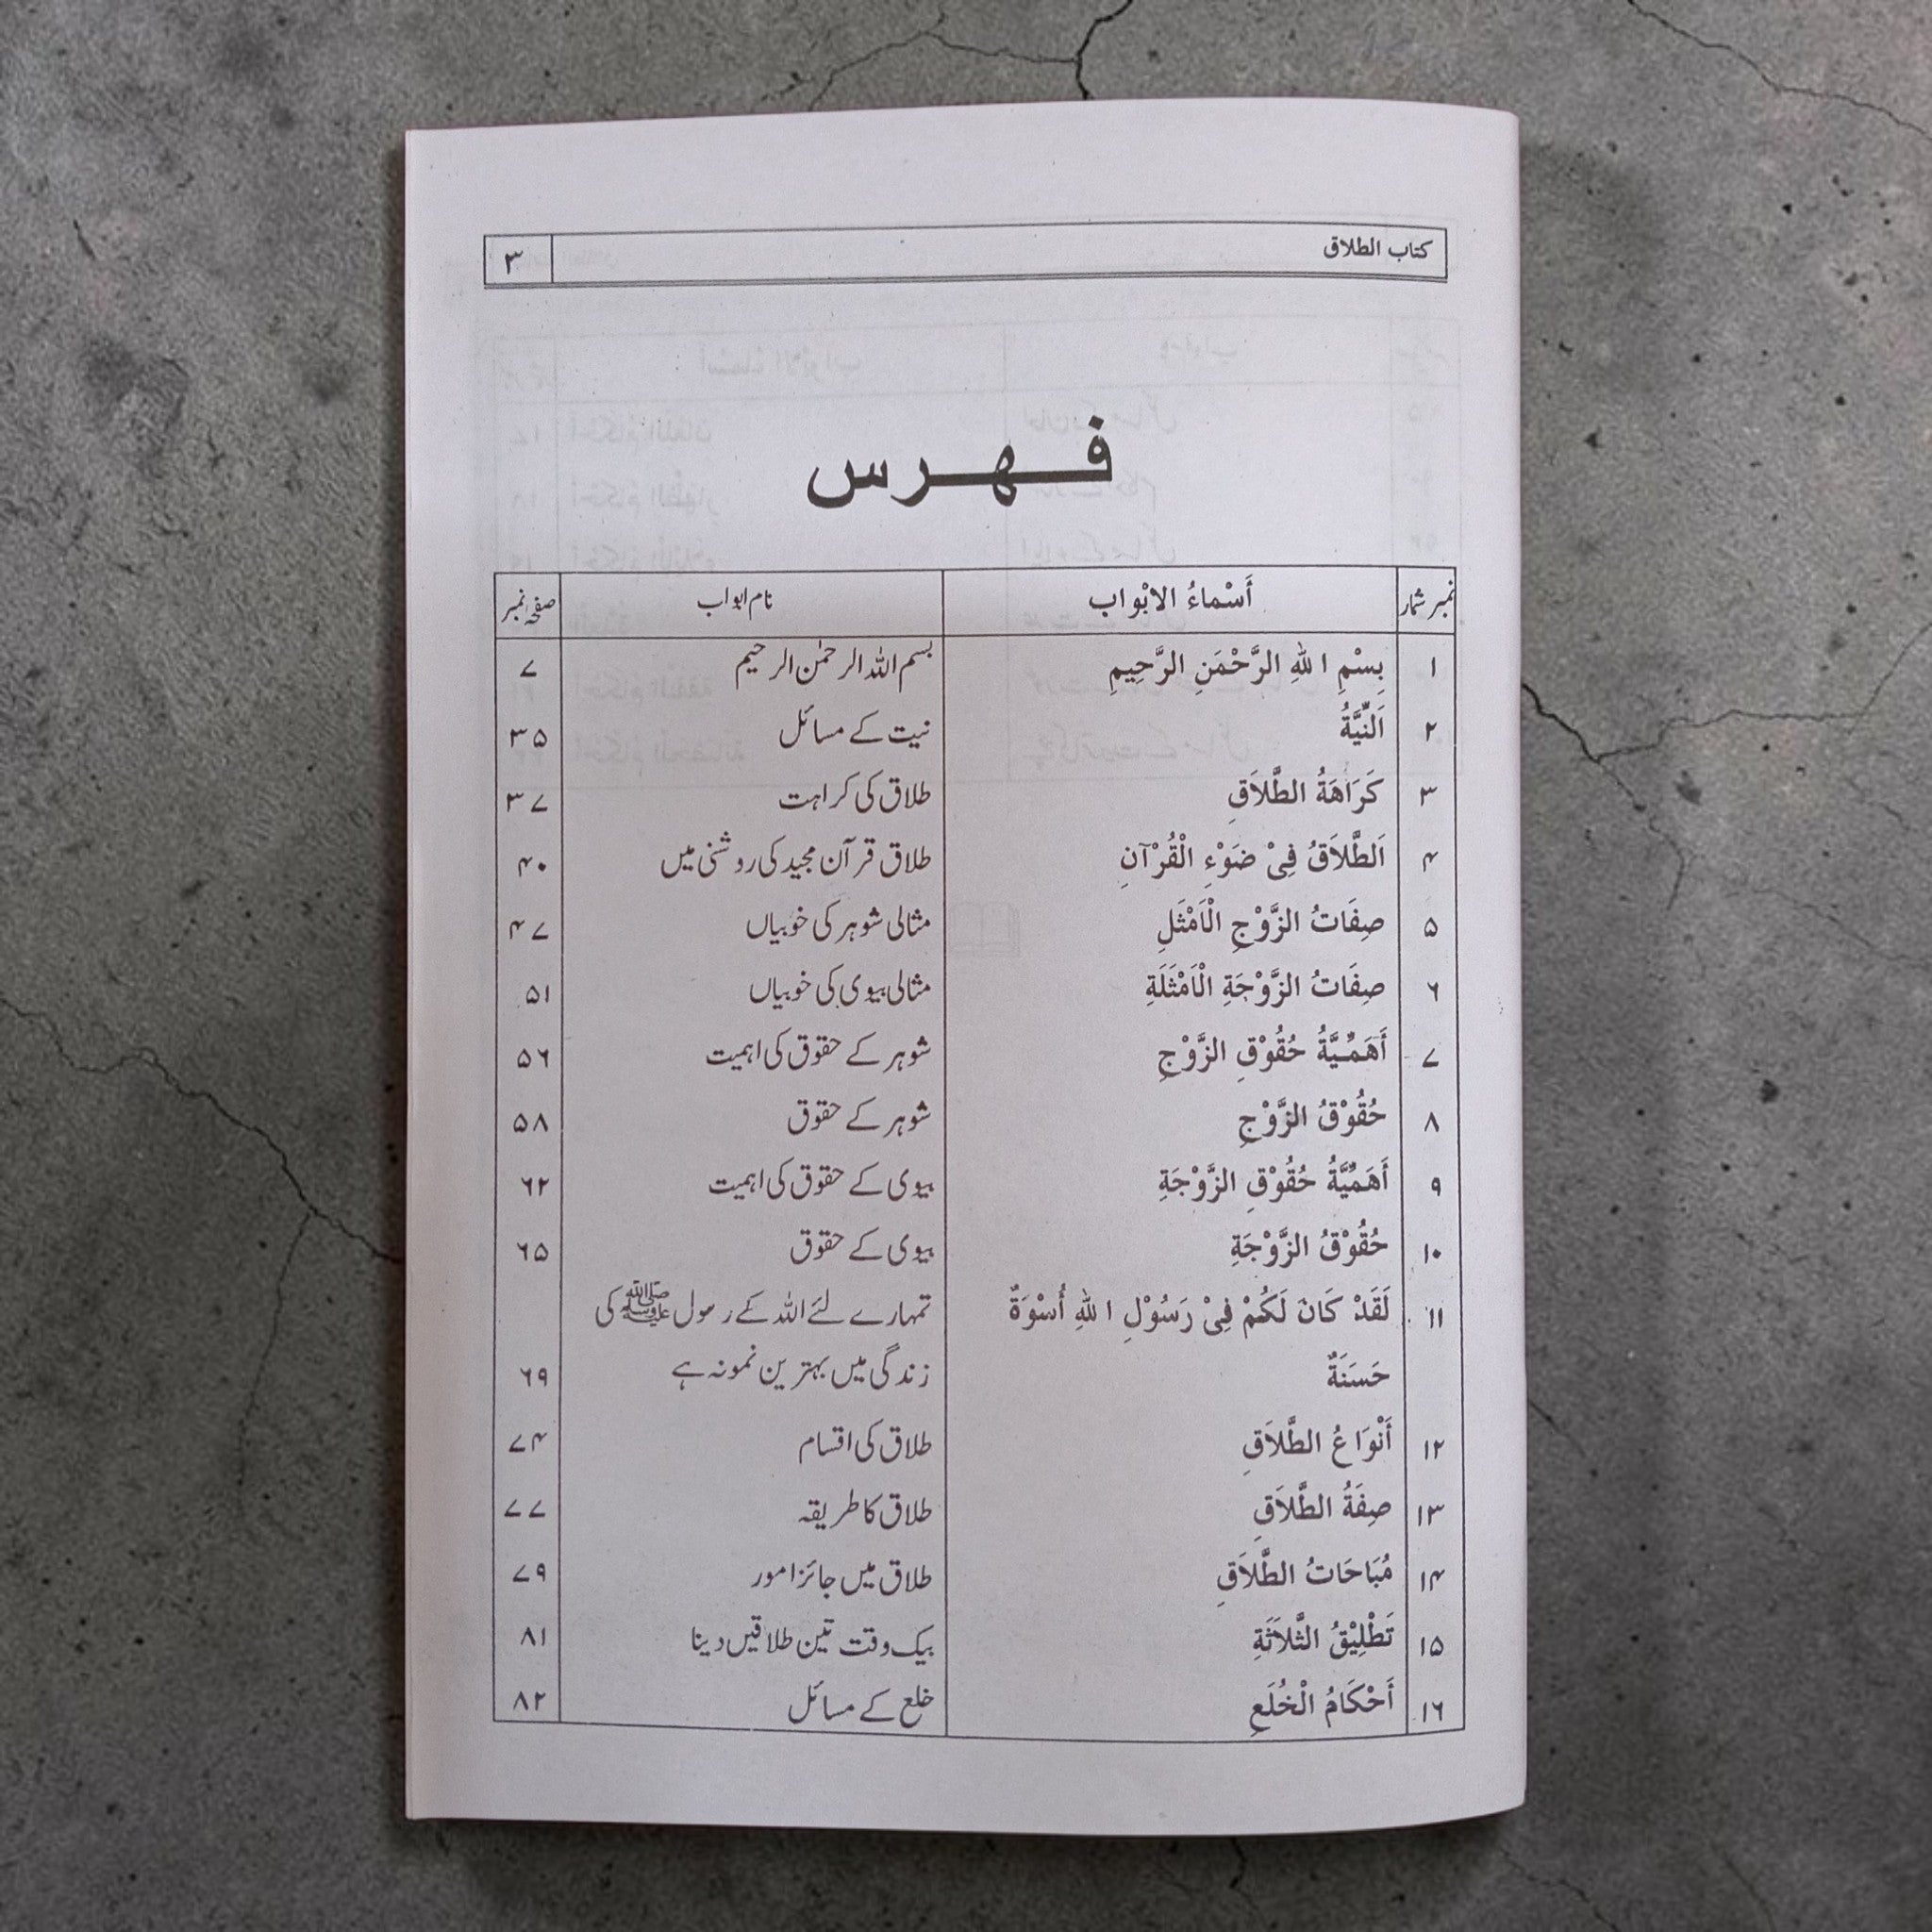 کتاب الطلاق ۳
فہرس
نمبر شمار أَسْمَاءُ الاَبْوَاب نام ابواب صفحہ نمبر
۱ بِسْمِ اللهِ الرَّحْمَنِ الرَّحِيمِ بسم اللہ الرحمٰن الرحیم ۷
۲ اَلنِّيَّةُ نیت کے مسائل ۳۵
۳ كَرَاهَةُ الطَّلَاقِ طلاق کی کراہت ۳۷
۴ اَلطَّلَاقُ فِىْ ضَوْءِ الْقُرْآنِ طلاق قرآن مجید کی روشنی میں ۴۰
۵ صِفَاتُ الزَّوْجِ الْاَمْثَلِ مثالی شوہر کی خوبیاں ۴۷
۶ صِفَاتُ الزَّوْجَةِ الْاَمْثَلَةِ مثالی بیوی کی خوبیاں ۵۱
۷ أَهَمِّيَّةُ حُقُوْقِ الزَّوْجِ شوہر کے حقوق کی اہمیت ۵۶
۸ حُقُوْقُ الزَّوْجِ شوہر کے حقوق ۵۸
۹ أَهَمِّيَّةُ حُقُوْقِ الزَّوْجَةِ بیوی کے حقوق کی اہمیت ۶۲
۱۰ حُقُوْقُ الزَّوْجَةِ بیوی کے حقوق ۶۵
۱۱ لَقَدْ كَانَ لَكُمْ فِىْ رَسُوْلِ اللهِ أُسْوَةٌ تمہارے لئے اللہ کے رسول ﷺ کی
حَسَنَةٌ زندگی میں بہترین نمونہ ہے ۶۹
۱۲ أَنْوَاعُ الطَّلَاقِ طلاق کی اقسام ۷۴
۱۳ صِفَةُ الطَّلَاقِ طلاق کا طریقہ ۷۷
۱۴ مُبَاحَاتُ الطَّلَاقِ طلاق میں جائز امور ۷۹
۱۵ تَطْلِيْقُ الثَّلَاثَةِ بیک وقت تین طلاقیں دینا ۸۱
۱۶ أَحْكَامُ الْخُلَعِ خلع کے مسائل ۸۲